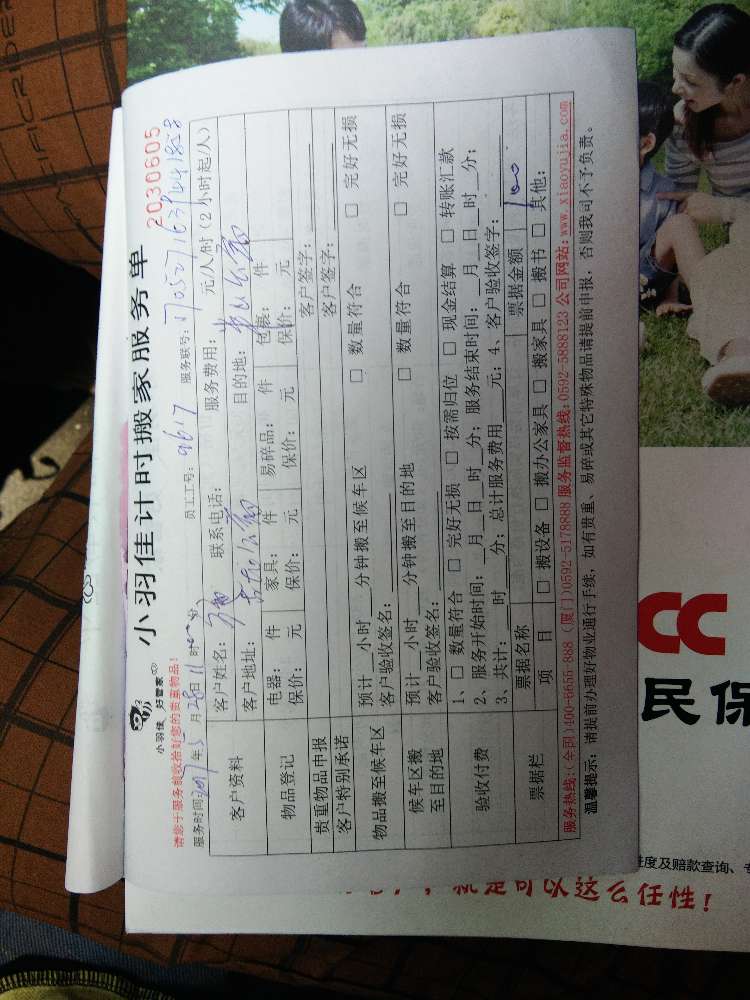 小羽佳计时搬家服务单
2030605
小羽佳 好管家
请您于服务前收拾好您的贵重物品!
服务时间: 2017年5月28日11时 分 员工工号: 9617 服务联号:
客户资料 客户姓名: 联系电话: 服务费用: 元/人/时(2小时起/人)
客户地址: 目的地:
物品登记 电器: 件 家具: 件 易碎品: 件 包裹: 件
保价: 元 保价: 元 保价: 元 保价: 元
贵重物品申报 客户签字:
客户特别承诺 客户签字:
物品搬至候车区 预计__小时__分钟搬至候车区 □ 数量符合 □ 完好无损
客户验收签名:
候车区搬至目的地 预计__小时__分钟搬至目的地 □ 数量符合 □ 完好无损
客户验收签名:
验收付费 1、□ 数量符合 □ 完好无损 □ 按需归位 □ 现金结算 □ 转账汇款
2、服务开始时间:__月__日__时__分; 服务结束时间:__月__日__时__分;
3、共计:__时__分; 总计服务费用__元; 4、客户验收签字:
票据栏 票据名称 票据金额
项 目 □ 搬设备 □ 搬办公家具 □ 搬家具 □ 搬书 □ 其他:
服务热线:(全国)400-6655-888 (厦门)0592-5178888 服务监督热线:0592-5888123 公司网站:www.xiaoyujia.com
温馨提示: 请提前办理好物业通行手续, 如有贵重、易碎或其它特殊物品请提前申报, 否则我司不予负责。
CC
民保
进度及赔款查询、
就是可以这么任性!